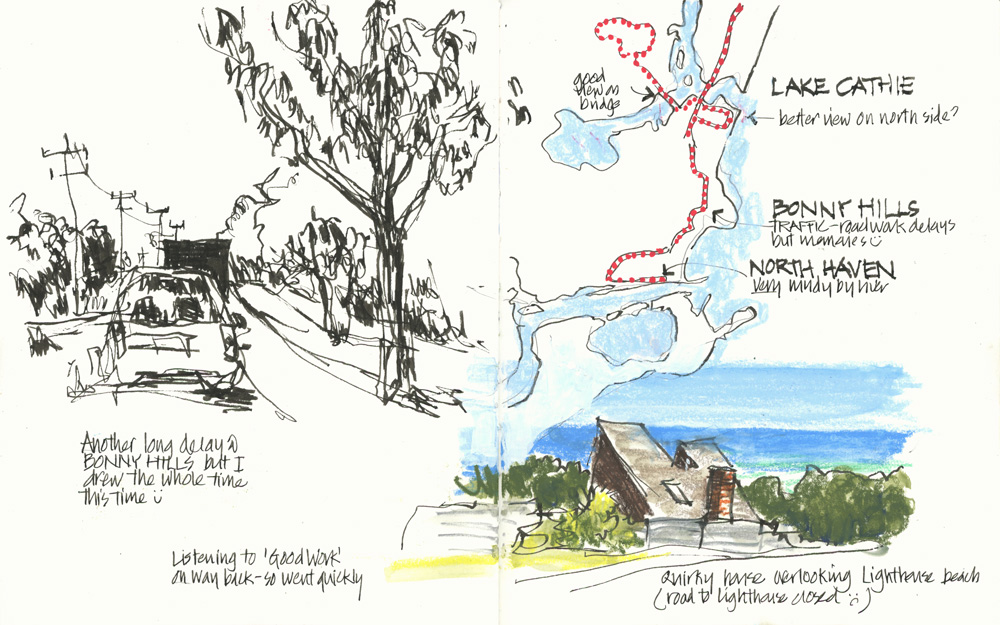 Another long delay @
BONNY HILLS but I
drew the whole time
this time
Listening to 'Good Work'
on way back - so went quickly
good
view on
bridge
LAKE CATHIE
better view on north side?
BONNY HILLS
TRAFFIC - roadwork delays
but manages
NORTH HAVEN
very windy by river
Quirky house overlooking Lighthouse beach
(road to lighthouse closed )